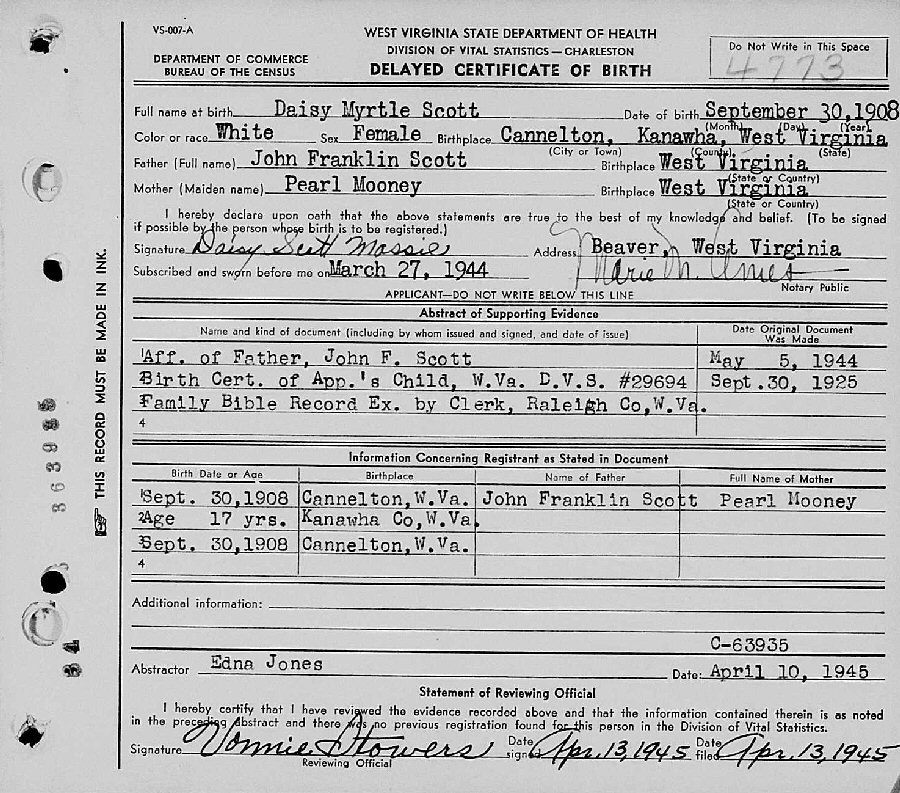 VS-007-A
WEST VIRGINIA STATE DEPARTMENT OF HEALTH
DIVISION OF VITAL STATISTICS—CHARLESTON
DEPARTMENT OF COMMERCE
BUREAU OF THE CENSUS
DELAYED CERTIFICATE OF BIRTH
Do Not Write in This Space
4773
Full name at birth Daisy Myrtle Scott Date of birth September 30,1908
(Month) (Day) (Year)
Color or race White Sex Female Birthplace Cannelton, Kanawha, West Virginia
(City or Town) (County) (State)
Father (Full name) John Franklin Scott Birthplace West Virginia
(State or Country)
Mother (Maiden name) Pearl Mooney Birthplace West Virginia
(State or Country)
I hereby declare upon oath that the above statements are true to the best of my knowledge and belief. (To be signed
if possible by the person whose birth is to be registered.)
Signature Daisy Scott Massie Address Beaver, West Virginia
Subscribed and sworn before me on March 27, 1944 Marie M.
Notary Public
APPLICANT—DO NOT WRITE BELOW THIS LINE
THIS RECORD MUST BE MADE IN INK.
Abstract of Supporting Evidence
Name and kind of document (including by whom issued and signed, and date of issue) Date Original Document
Was Made
1 Aff. of Father, John F. Scott May 5, 1944
2 Birth Cert. of App.'s Child, W.Va. D.V.S. #29694 Sept.30, 1925
3 Family Bible Record Ex. by Clerk, Raleigh Co,W.Va.
4
Information Concerning Registrant as Stated in Document
Birth Date or Age Birthplace Name of Father Full Name of Mother
1 Sept. 30,1908 Cannelton,W.Va. John Franklin Scott Pearl Mooney
2 Age 17 yrs. Kanawha Co,W.Va.
3 Sept. 30,1908 Cannelton,W.Va.
4
Additional information:
C-63935
Abstractor Edna Jones Date: April 10, 1945
Statement of Reviewing Official
I hereby certify that I have reviewed the evidence recorded above and that the information contained therein is as noted
in the preceding abstract and there was no previous registration found for this person in the Division of Vital Statistics.
Signature Vonnie Stowers Date signed Apr. 13, 1945 Date filed Apr. 13, 1945
Reviewing Official